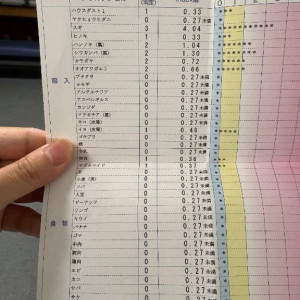 ハウスダスト1 1 0.33 **
ヤケヒョウヒダニ 0 0.27未満 *
スギ 3 4.04
ヒノキ 1 0.33
ハンノキ(属) 2 1.04
シラカンバ(属) 2 1.30
カモガヤ 2 0.72
オオアワガエリ 2 0.66
ブタクサ 0 0.27未満
ヨモギ 0 0.27未満
アルテルナリア 0 0.27未満
アスペルギルス 0 0.27未満
カンジダ 0 0.27未満
0 0.27未満
ネコ(皮屑) 0 0.27未満
イヌ(皮屑) 1 0.48
ゴキブリ 0 0.27未満
0 0.27未満
0 0.27未満
卵白 1 0.36
オボムコイド 1 0.37
米 0 0.27未満
小麦(実) 0 0.27未満
ソバ 0 0.27未満
大豆 0 0.27未満
ピーナッツ 0 0.27未満
リンゴ 0 0.27未満
キウイ 0 0.27未満
バナナ 0 0.27未満
ゴマ 0 0.27未満
牛肉 0 0.27未満
鶏肉 0 0.27未満
豚肉 0 0.27未満
エビ 0 0.27未満
カニ 0 0.27未満
サバ 0 0.27未満
サケ 0 0.27未満
吸入
食物